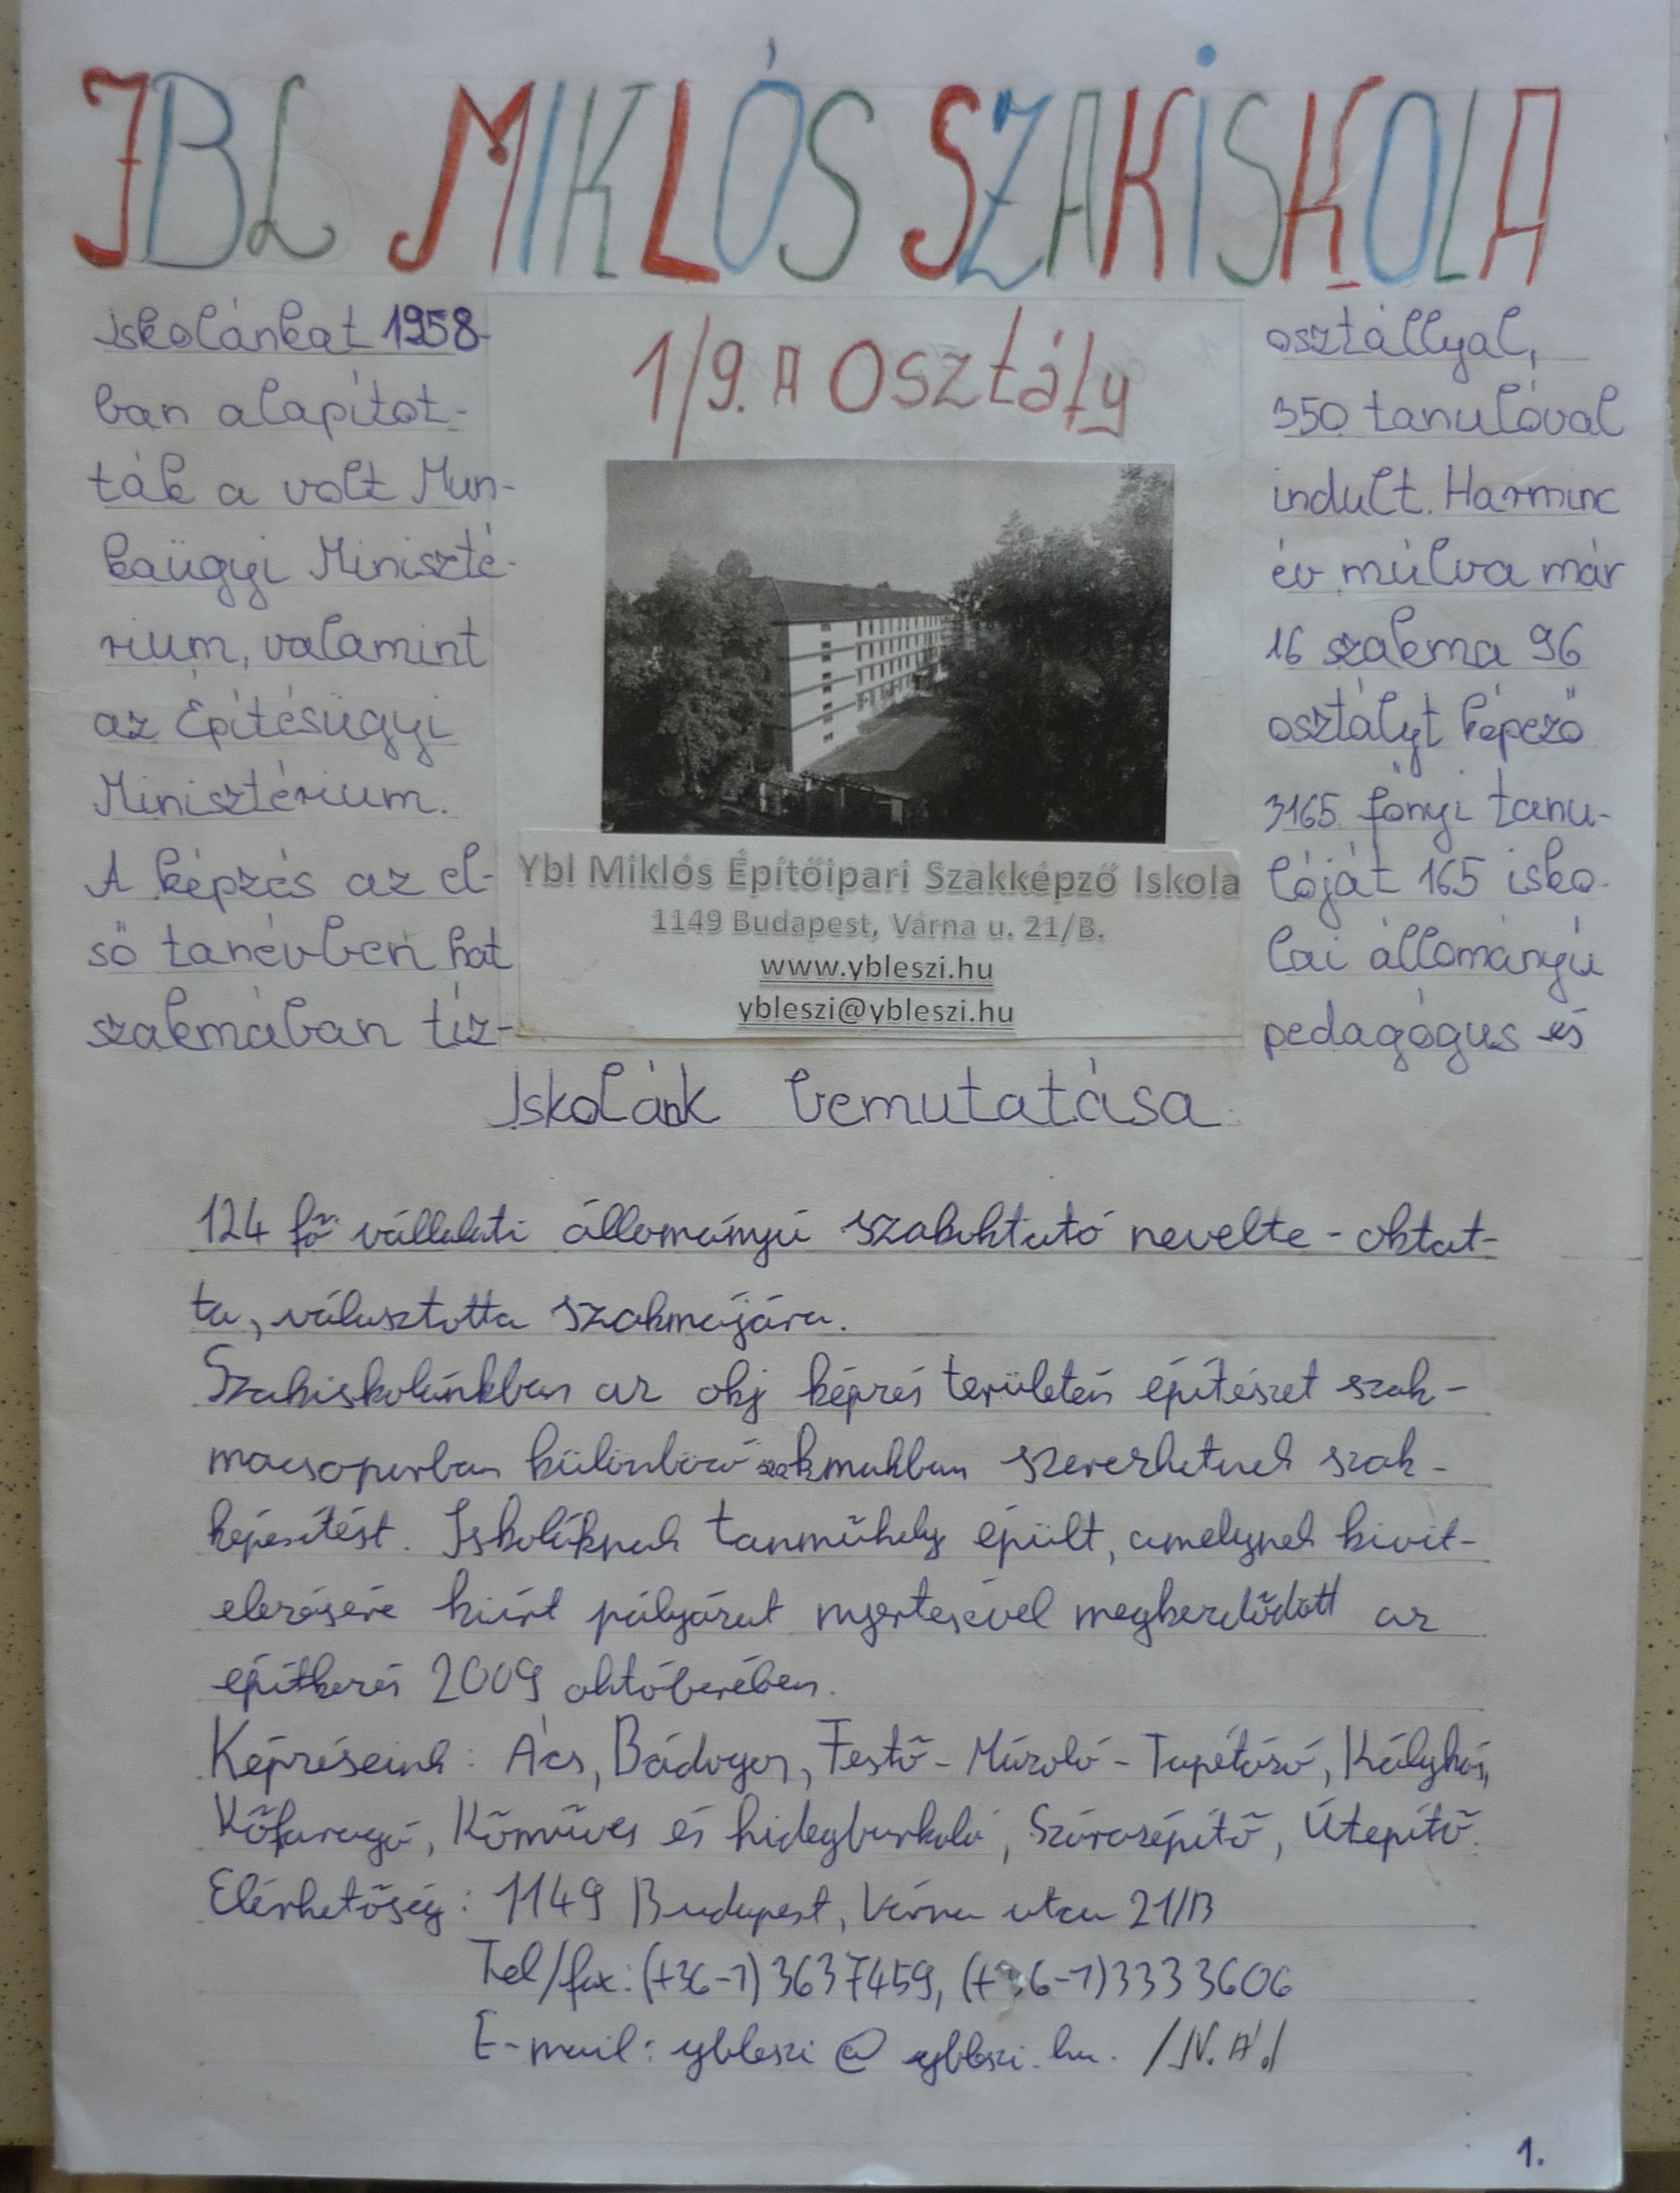 YBL MIKLÓS SZAKISKOLA
1/9. A Osztály
Iskolánkat 1958-
ban alapítot-
ták a volt Mun-
kaügyi Miniszté-
rium, valamint
az Építésügyi
Minisztérium.
A képzés az el-
ső tanévben hat
szakmában tíz-
osztállyal,
350 tanulóval
indult. Harminc
év múlva már
16 szakma 96
osztályt képező
3165 főnyi tanu-
lóját 165 isko-
lai állományú
pedagógus és
Ybl Miklós Építőipari Szakképző Iskola
1149 Budapest, Várna u. 21/B.
www.ybleszi.hu
ybleszi@ybleszi.hu
Iskolánk bemutatása
124 fő vállalati állományú szakoktató nevelte - oktat-
ta, választotta szakmájára.
Szakiskolánkban az okj képzés területén építészet szak-
macsoporban különböző szakmakban szerezhetnek szak-
képesítést. Iskolának tanműhely épült, amelynek kivit-
elezésére kiírt pályázat nyertesével megkezdődött az
építkezés 2009 októberében.
Képzéseink: Ács, Bádogos, Festő - Mázoló - Tapétázó, Kályhás,
Kőfaragó, Kőműves és hidegburkoló, Szárazépítő, Útépítő.
Elérhetőség: 1149 Budapest, Várna utca 21/B
Tel/fax: (+36-1) 3637459, (+36-1) 3333606
E-mail: ybleszi @ ybleszi.hu. /N.Á./
1.